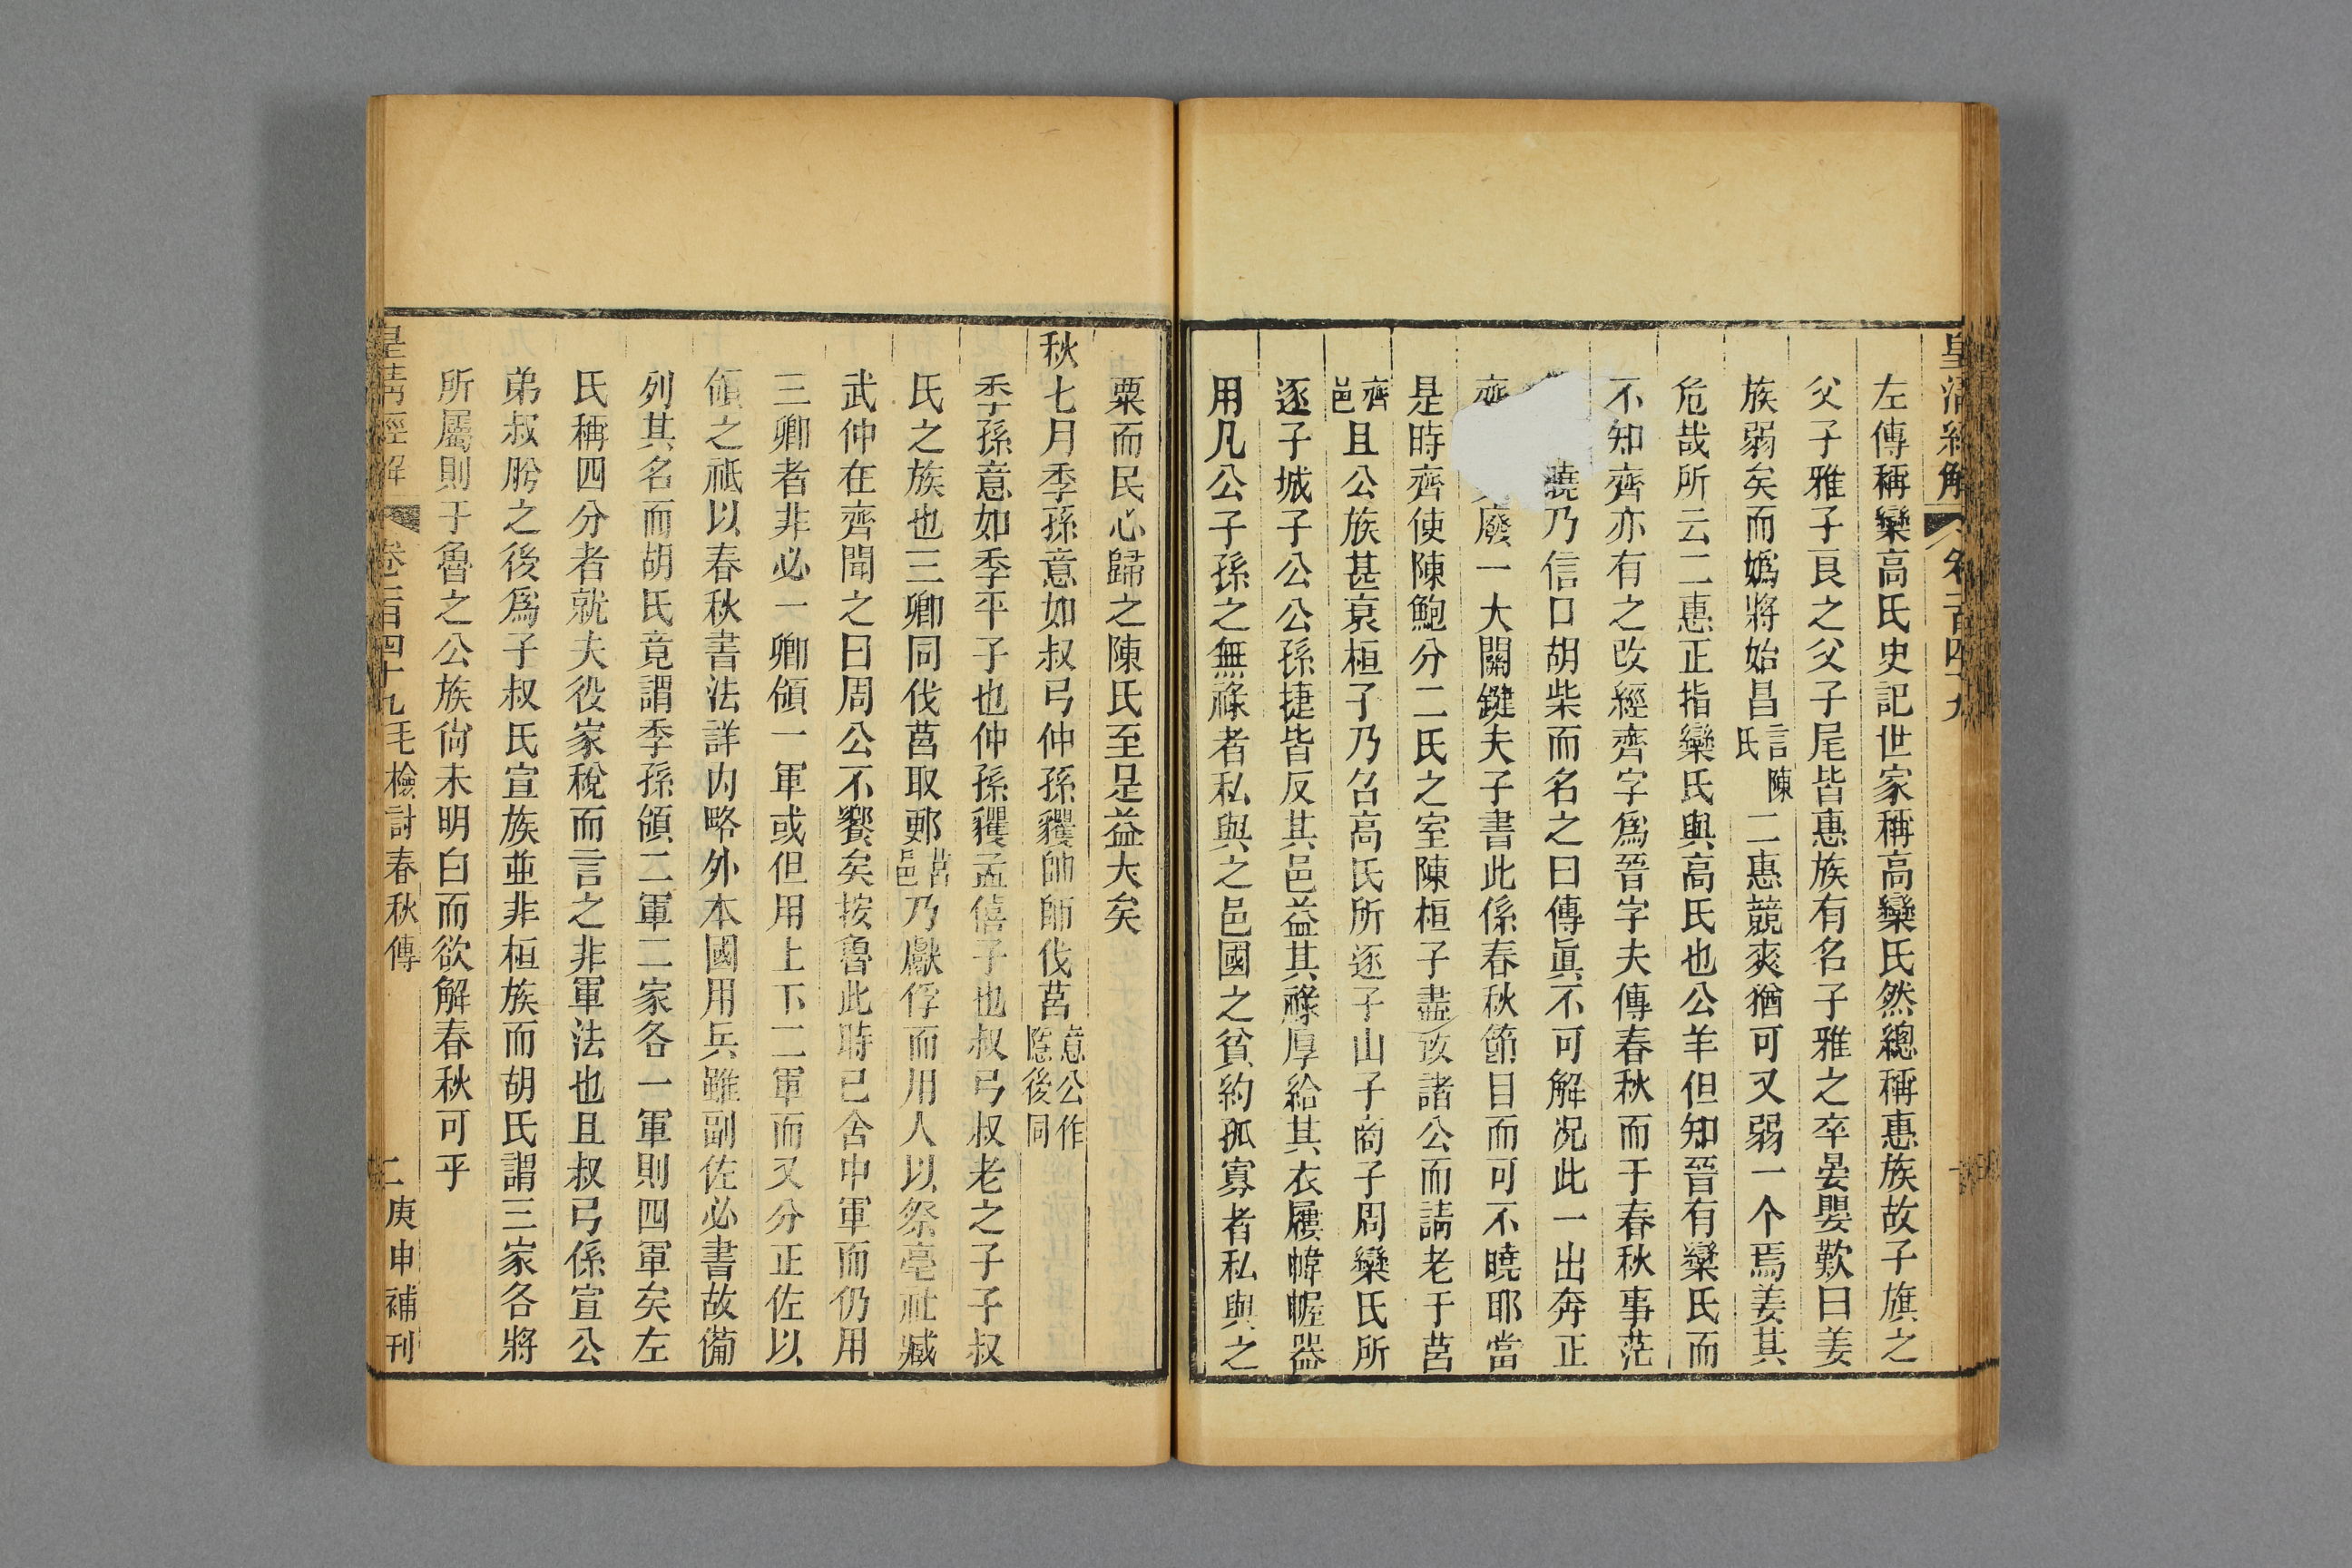 皇清經解 卷一百四十九
左傳稱欒高氏史記世家稱高欒氏然總稱惠族故子旗之
父子雅子良之父子尾皆惠族有名子雅之卒晏嬰歎曰姜
族弱矣而嬀將始昌言陳氏二惠競爽猶可又弱一个焉姜其
危哉所云二惠正指欒氏與高氏也公羊但知晉有欒氏而
不知齊亦有之改經齊字爲晉字夫傳春秋而于春秋事茫
曉乃信口胡柴而名之曰傳眞不可解况此一出奔正
齊廢一大關鍵夫子書此係春秋節目而可不曉耶當
是時齊使陳鮑分二氏之室陳桓子盡致諸公而請老于莒
齊邑且公族甚衰桓子乃召高氏所逐子山子商子周欒氏所
逐子城子公公孫捷皆反其邑益其祿厚給其衣屨幃幄器
用凡公子孫之無祿者私與之邑國之貧約孤寡者私與之
粟而民心歸之陳氏至是益大矣
秋七月季孫意如叔弓仲孫貜帥師伐莒意公作隱後同
季孫意如季平子也仲孫貜孟僖子也叔弓叔老之子子叔
氏之族也三卿同伐莒取郠莒邑乃獻俘而用人以祭亳社臧
武仲在齊聞之曰周公不饗矣按魯此時已舍中軍而仍用
三卿者非必一卿領一軍或但用上下二軍而又分正佐以
領之祗以春秋書法詳內略外本國用兵雖副佐必書故備
列其名而胡氏竟謂季孫領二軍二家各一軍則四軍矣左
氏稱四分者就夫役家稅而言之非軍法也且叔弓係宣公
弟叔肹之後爲子叔氏宣族並非桓族而胡氏謂三家各將
所屬則于魯之公族尙未明白而欲解春秋可乎
皇清經解 卷一百四十九 毛檢討春秋傳 二 庚申補刊